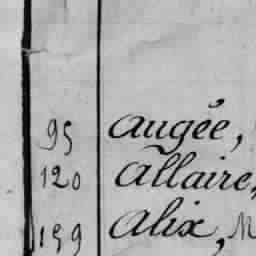 95 augée,
120 allaire,
159 alix, M